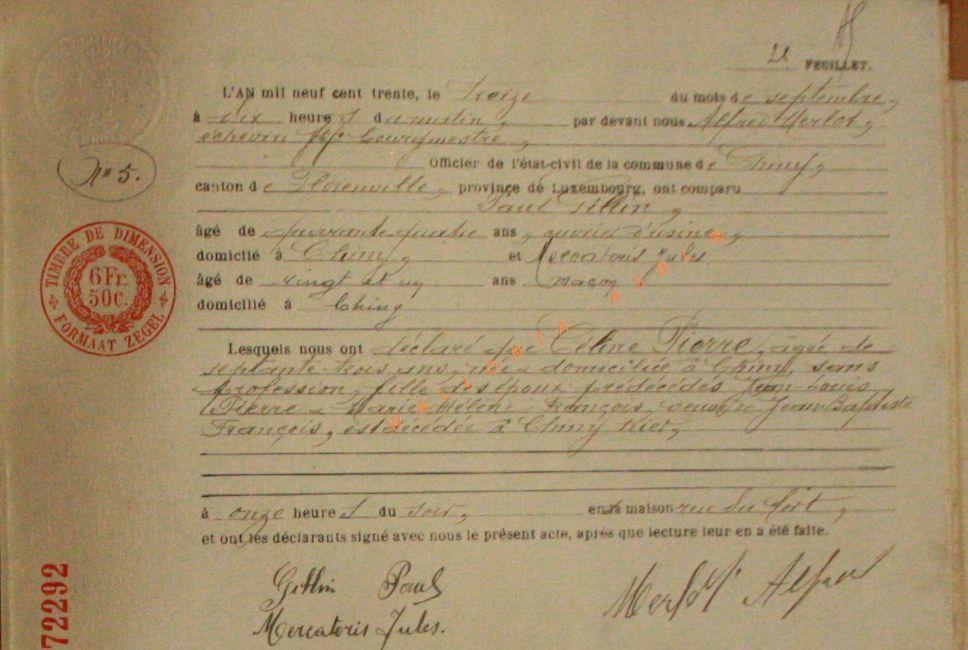 21 FEUILLET.
L'AN mil neuf cent trente, le treize du mois de septembre,
à dix heures du matin, par devant nous Alfred Merlot,
échevin ff bourgmestre,
Officier de l'état-civil de la commune de Chiny,
N° 5.
canton de Florenville, province de Luxembourg, ont comparu
Paul Gillin,
âgé de quarante quatre ans, ouvrier d'usine,
domicilié à Chiny, et Mercatoris Jules
âgé de vingt et un ans maçon
domicilié à Chiny
TIMBRE DE DIMENSION
6 Fr.
50c.
FORMAAT ZEGEL
Lesquels nous ont déclaré que Céline Pierre, agée de
septante trois ans, née & domiciliée à Chiny, sans
profession, fille des époux prédécédés Jean Louis
Pierre & Marie Hélène François, veuve de Jean Baptiste
François, est décédée à Chiny hier,
à onze heures du soir, en sa maison rue du fort,
et ont les déclarants signé avec nous le présent acte, après que lecture leur en a été faite.
Gillin Paul
Mercatoris Jules.
Alfred
72292